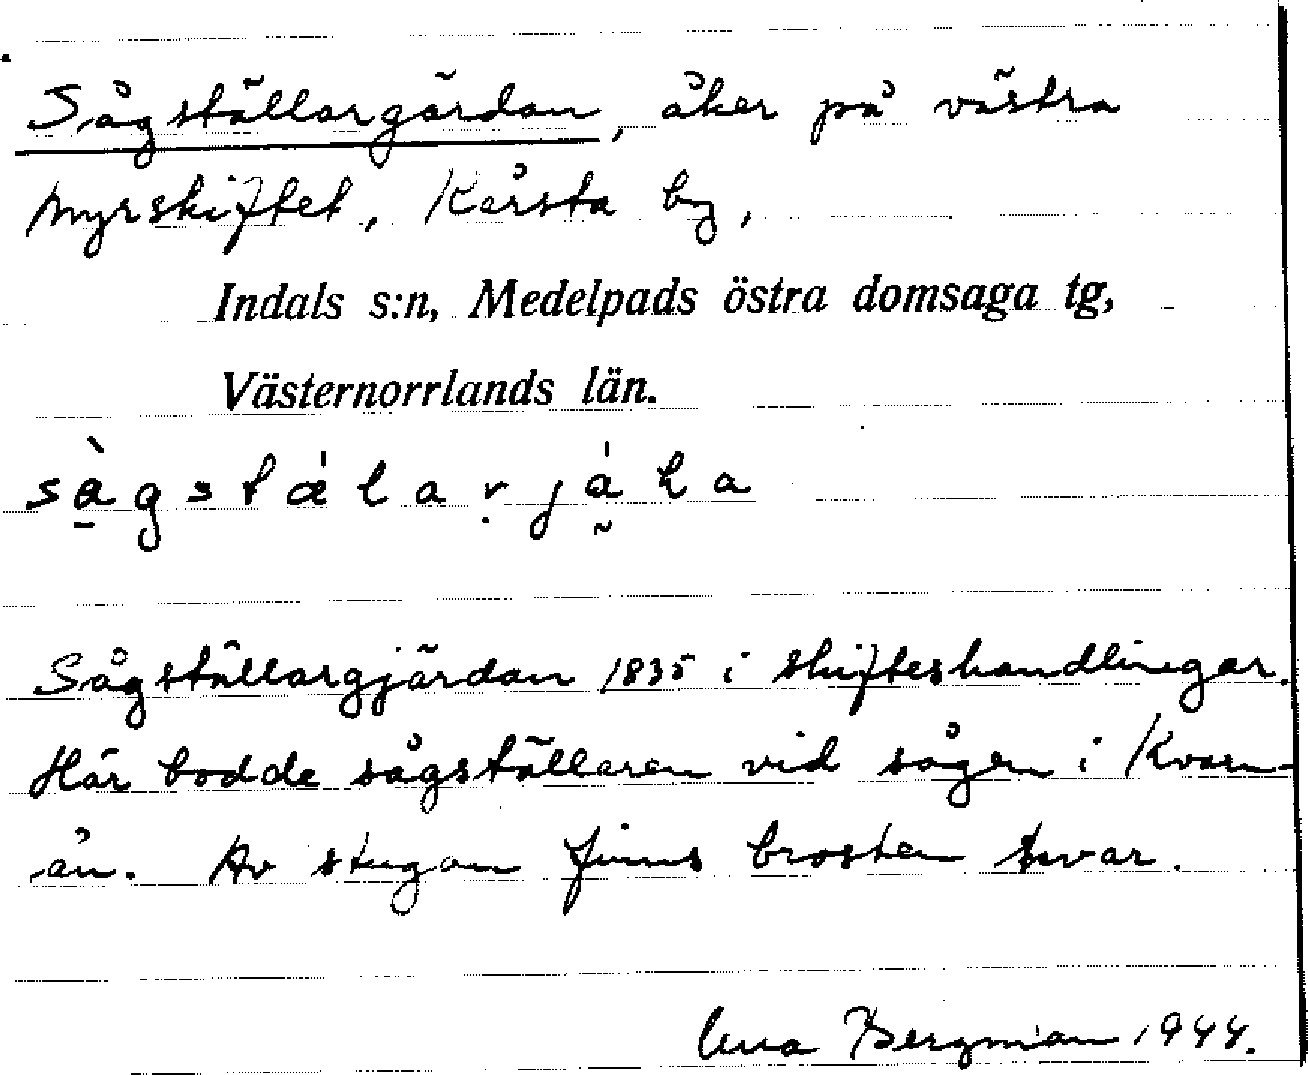 Sågställargärdan, åker på västra
Myrskiftet, Kårsta by,
Indals s:n, Medelpads östra domsaga tg,
Västernorrlands län.
Sågställargjärdan 1835 i skifteshandlingar.
Här bodde sågställaren vid sågen i Kvarn-
ån. Av stugan finns brosten kvar.
Bergman 1944.